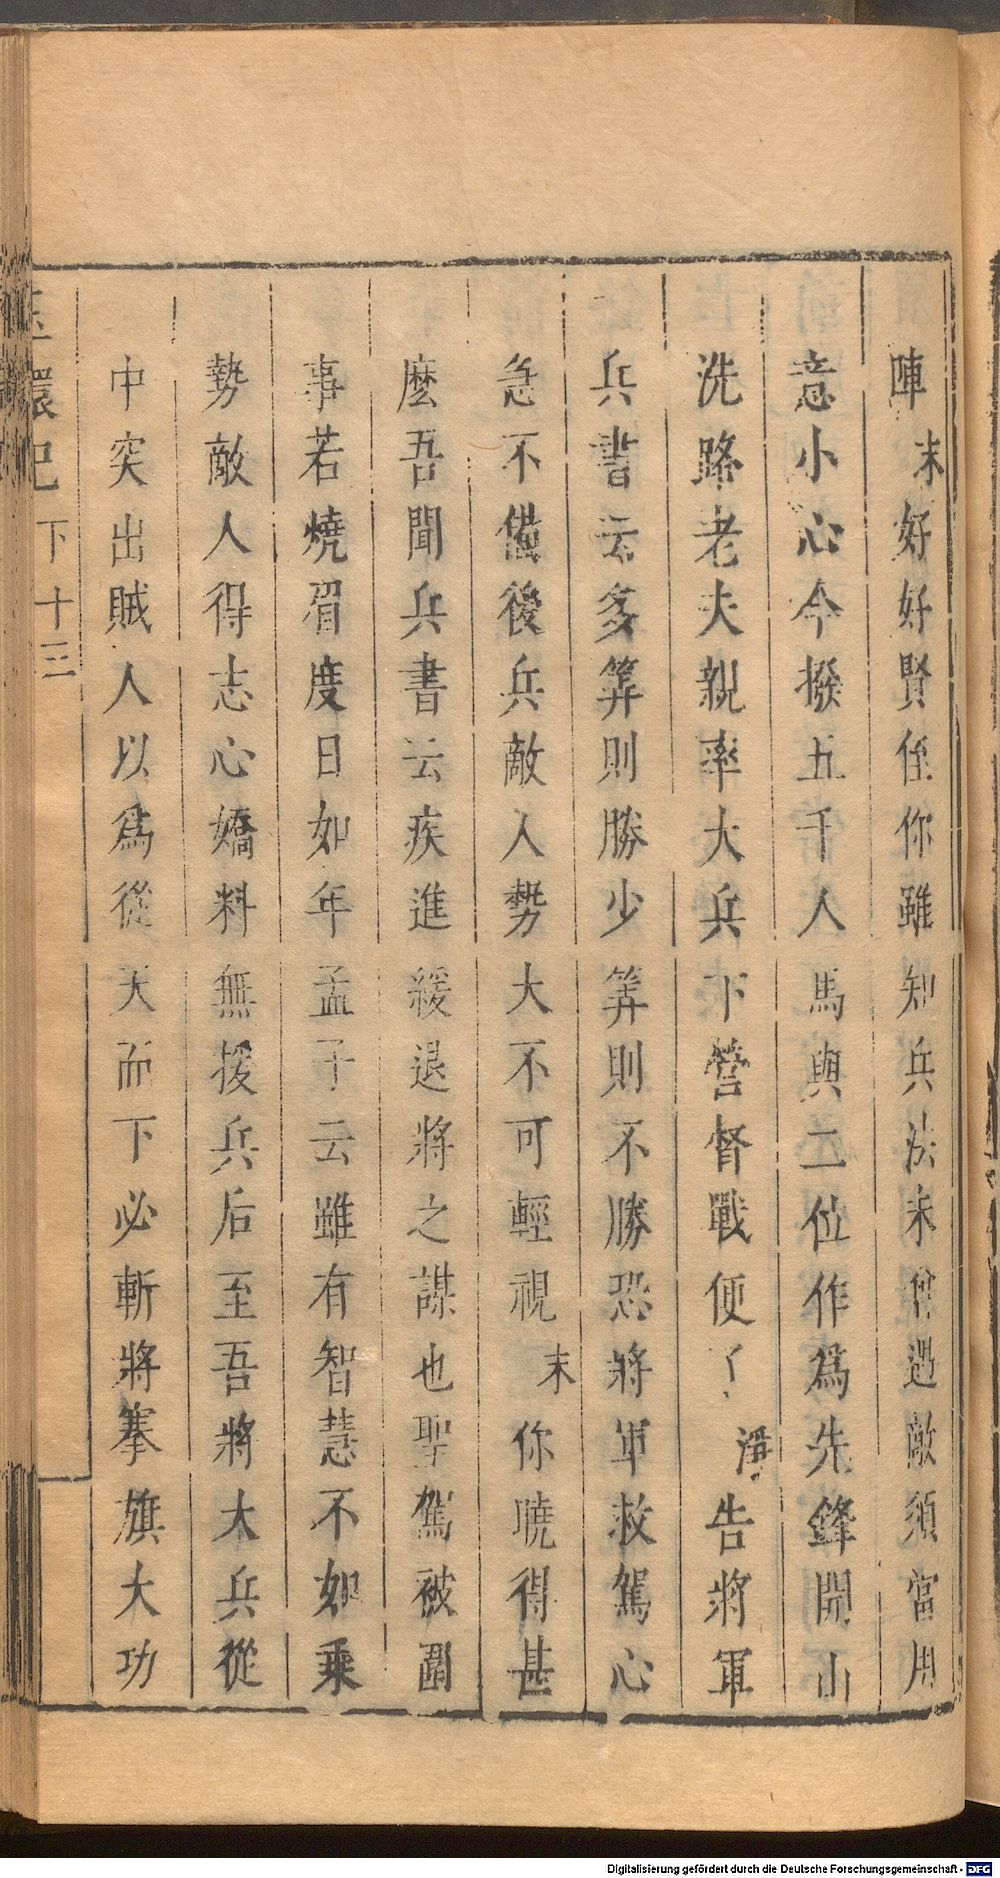 陣末好好賢侄你雖知兵法未曾遇敵須當用
意小心今撥五千人馬與二位作爲先鋒開山
洗路老夫親率大兵下營督戰便了淨告將軍
兵書云多筭則勝少筭則不勝恐將軍救駕心
急不備後兵敵人勢大不可輕視末你曉得甚
麼吾聞兵書云疾進緩退將之謀也聖駕被圍
事若燒眉度日如年孟子云雖有智慧不如乘
勢敵人得志心嬌料無援兵后至吾將大兵從
中突出賊人以爲從天而下必斬將搴旗大功
玉環記 下 十三
Digitalisierung gefördert durch die Deutsche Forschungsgemeinschaft - DFG